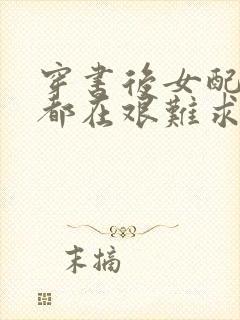 穿書後女配
都在艰難求
末摘